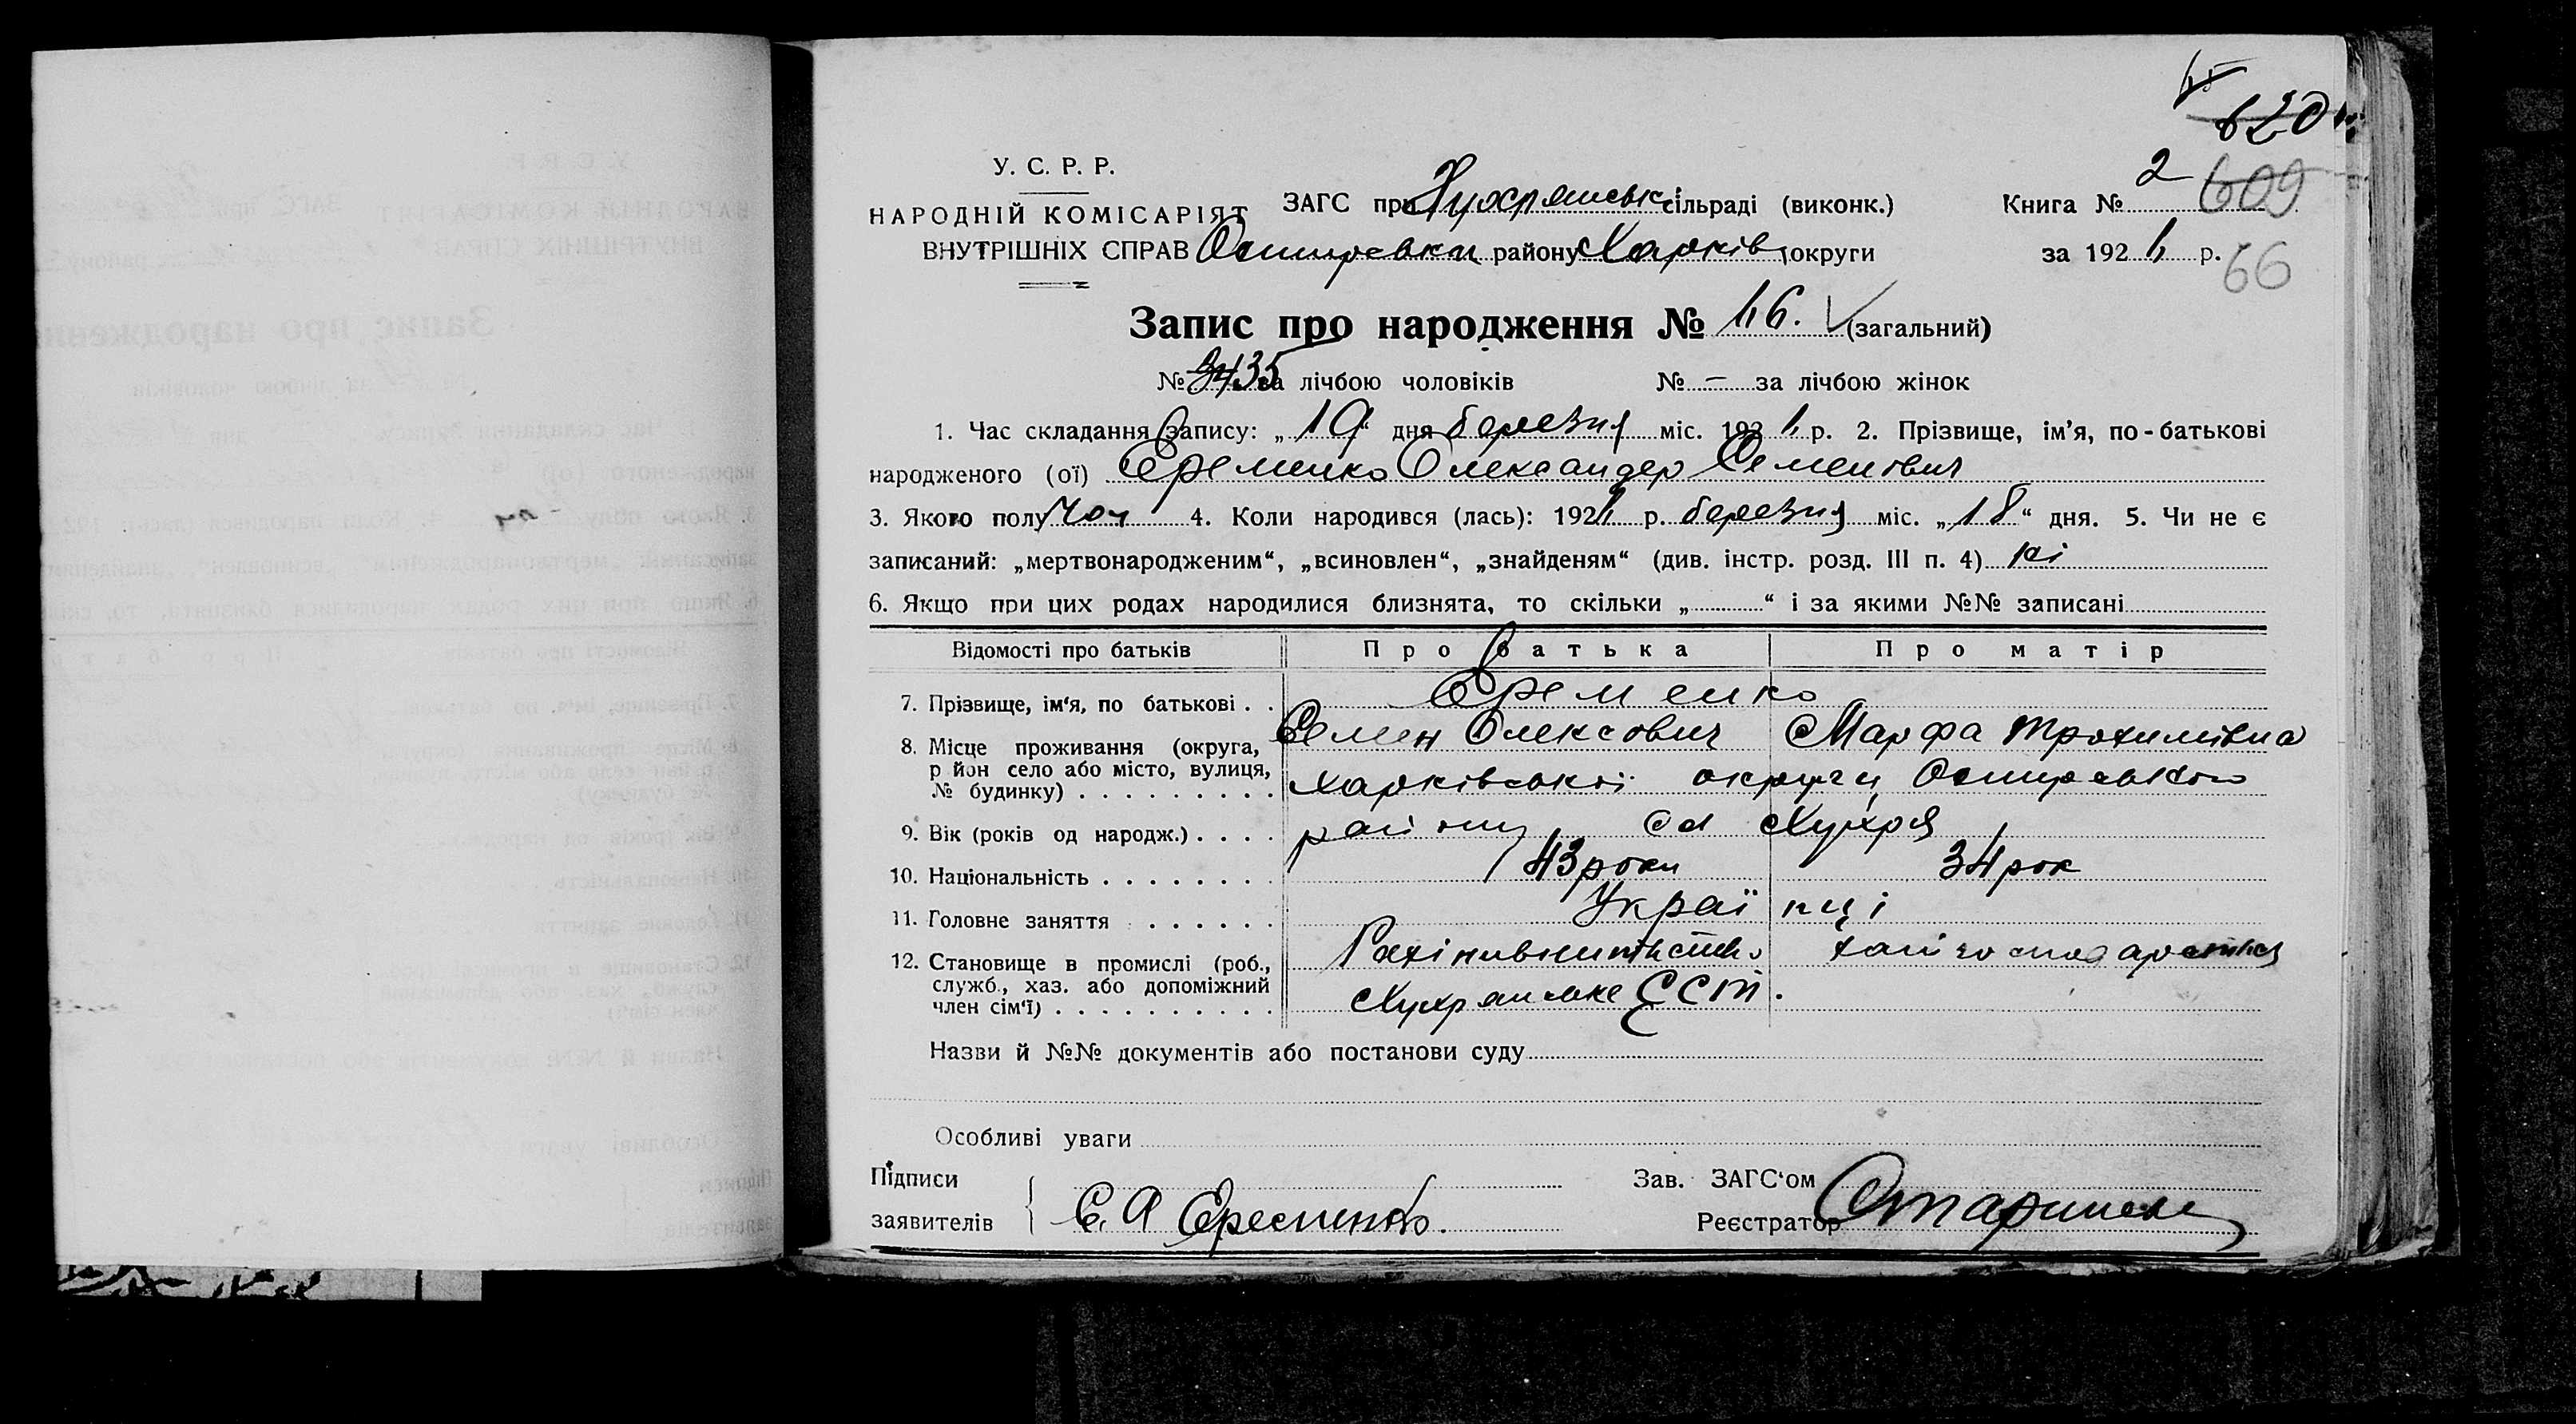 620
У. С. Р. Р.
НАРОДНІЙ КОМІСАРІЯТ
ВНУТРІШНІХ СПРАВ
ЗАГС при Хухрянськ сільраді (виконк.)
району Харків округи
Книга № 2
609
за 192 р.
66
Запис про народження № 116. (загальний)
№ 35 за лічбою чоловіків № — за лічбою жінок
1. Час складання запису: „19“ дня березня міс. 192 р. 2. Прізвище, ім’я, по-батькові
народженого (ої) Єременко Олександер Семенович
3. Якого полу Чол 4. Коли народився (лась): 192 р. березня міс. „18“ дня. 5. Чи не є
записаний: „мертвонародженим“, „всиновлен“, „знайденям“ (див. інстр. розд. III п. 4) ні
6. Якщо при цих родах народилися близнята, то скільки „ “ і за якими №№ записані
Відомості про батьків Про батька Про матір
7. Прізвище, ім‘я, по батькові . . Єременко
Семен Олексович Марфа Трохимівна
8. Місце проживання (округа,
р йон село або місто, вулиця,
№ будинку) . . . . . . . . . Харківської округи,
9. Вік (років од народж.) . . . . району, Хухря
43 роки 34 рок
10. Національність . . . . . . . .
Українці
11. Головне заняття . . . . . .
12. Становище в промислі (роб.,
служб., хаз. або допоміжний
член сім‘ї) . . . . . . . . . . Хухрянське ЄСТ.
Назви й №№ документів або постанови суду
Особливі уваги
Підписи
заявителів Єременко.
Зав. ЗАГС‘ом
Реєстратор